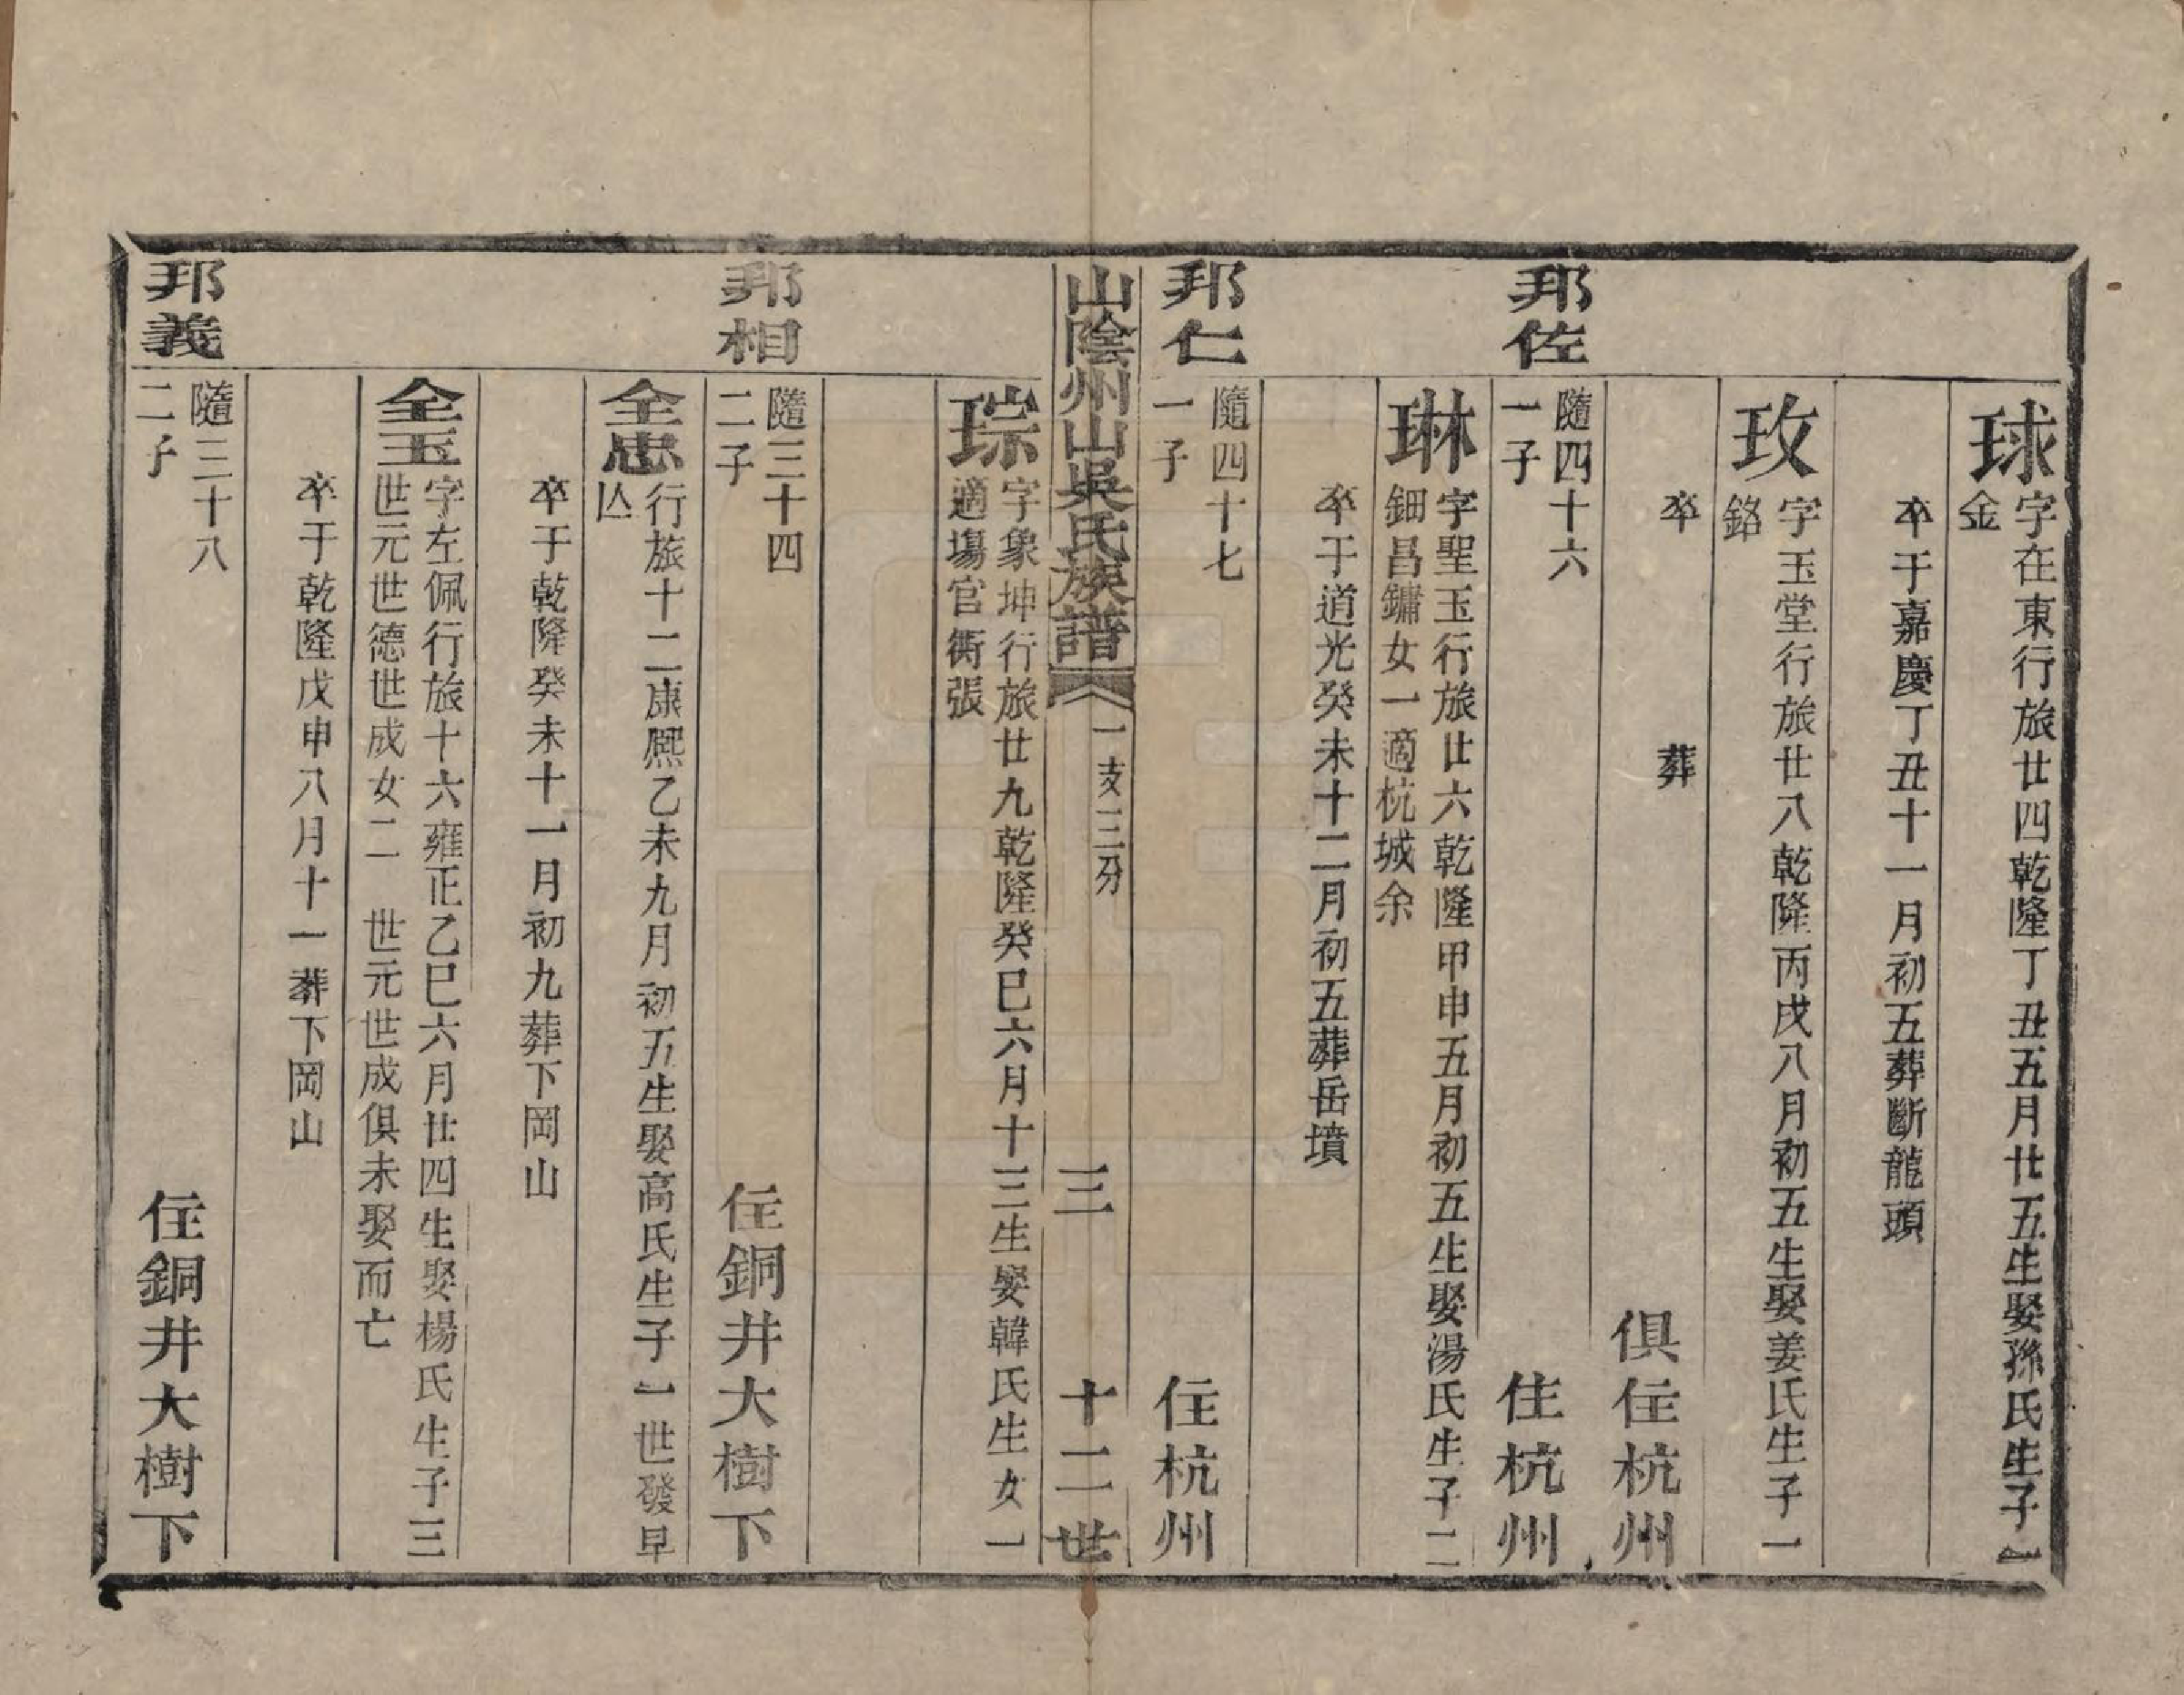 球
字在東行旅廿四乾隆丁丑五月廿五生娶孫氏生子一
金
卒于嘉慶丁丑十一月初五葬斷龍頭
玫
字玉堂行旅廿八乾隆丙戌八月初五生娶姜氏生子一
鉻
卒 葬
俱住杭州
邦佐
隨四十六
一子
住杭州
琳
字聖玉行旅廿六乾隆甲申五月初五生娶湯氏生子二
鈿昌鏞女一適杭城余
卒于道光癸未十二月初五葬岳墳
邦仁
隨四十七
一子
住杭州
山陰州山吳氏族譜 一支三分 三 十二世
琮
字象坤行旅廿九乾隆癸巳六月十三生娶韓氏生女一
適塲官衖張
邦相
隨三十四
二子
住銅井大樹下
全忠
行旅十二康熙乙未九月初五生娶高氏生子一世發早
亾
卒于乾隆癸未十一月初九葬下岡山
全玉
字左佩行旅十六雍正乙巳六月廿四生娶楊氏生子三
世元世德世成女二 世元世成俱未娶而亡
卒于乾隆戊申八月十一葬下岡山
邦義
隨三十八
二子
住銅井大樹下